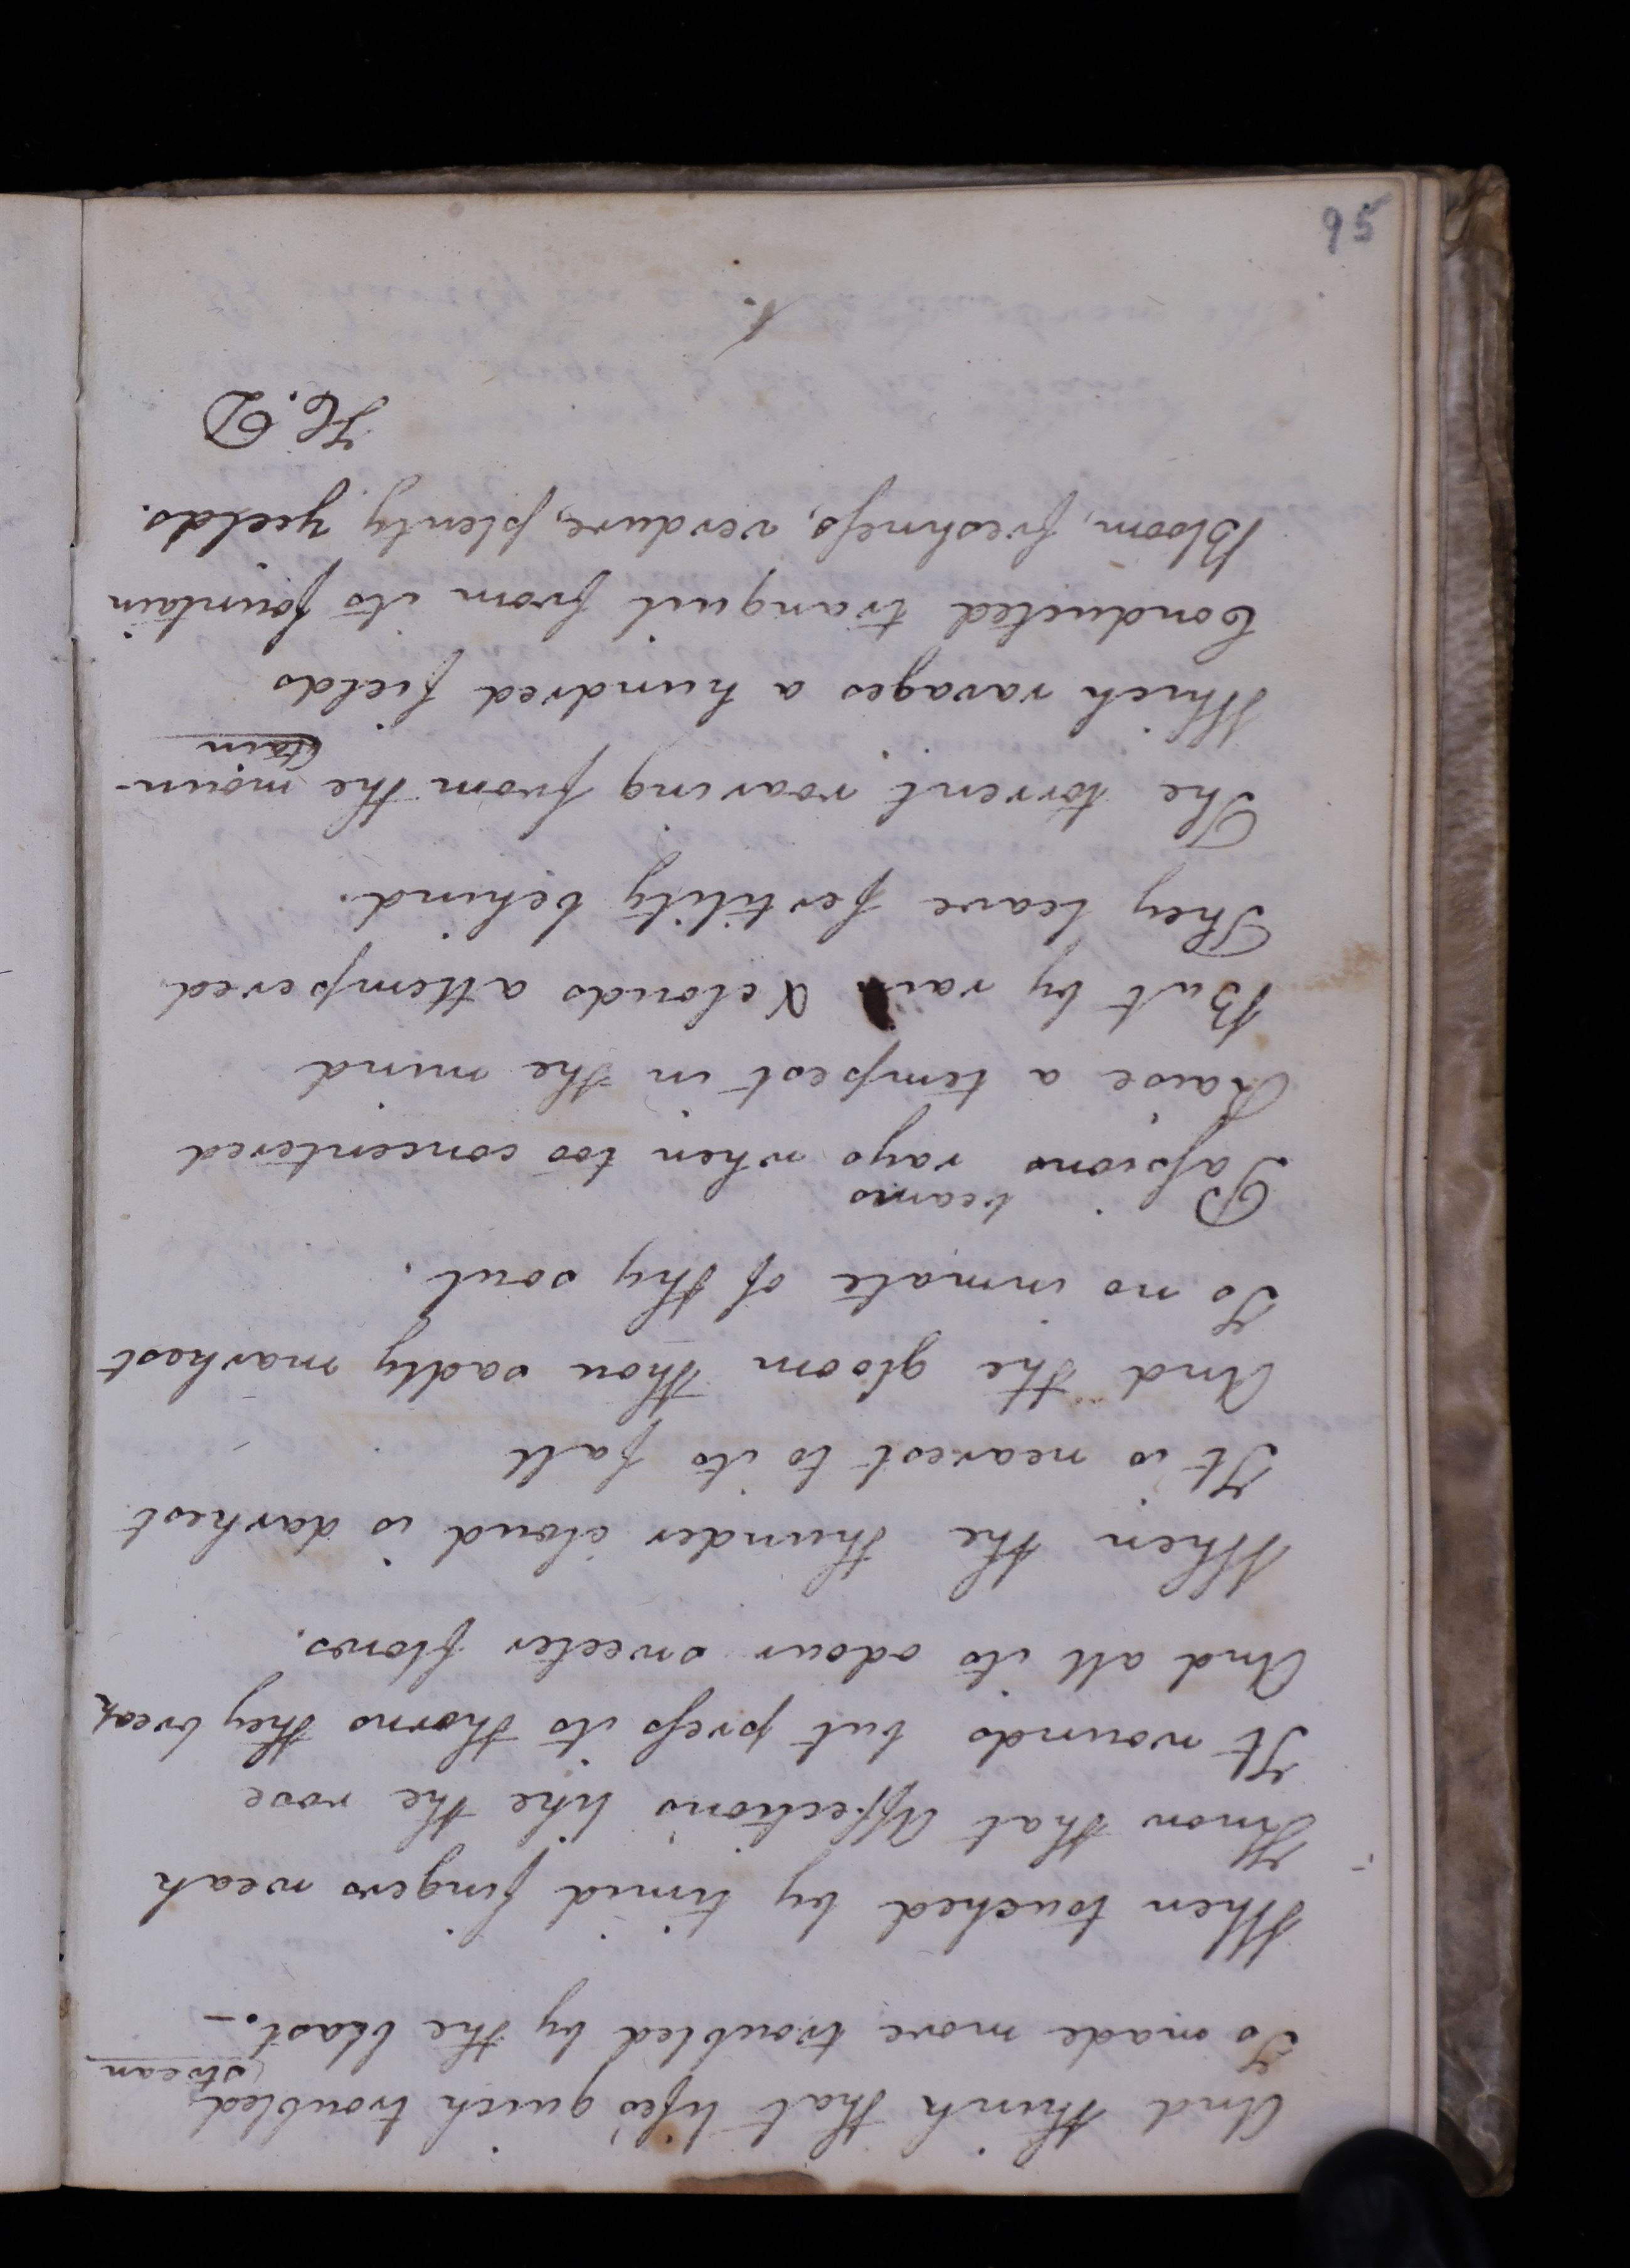 And think that life's quick troubled
stream
Is made more troubled by the blast. —
When touched by timid fingers weak
Know that Affections like the rose
It wounds but press its thorns they break
And all its odour sweeter flows.
When the thunder cloud is darkest
It is nearest to its fall
And the gloom thou sadly markest
Is no inmate of thy soul.
beams
Passions rays when too concentered
Raise a tempest in the mind
But by rain & clouds attempered
They leave fertility behind.
The torrent roaring from the moun-
tain
Which ravages a hundred fields
Conducted tranquil from its fountain
Bloom, freshness, verdure, plenty yields.
H. D
95